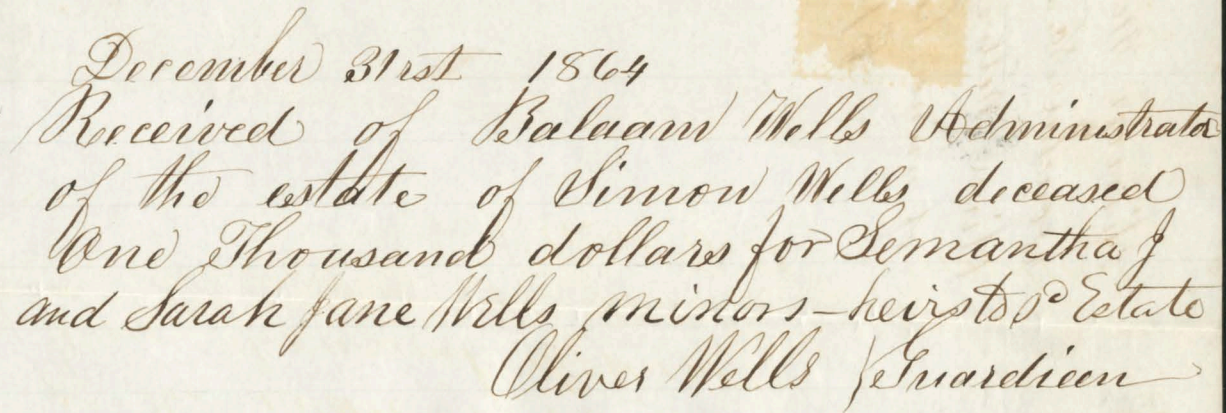 December 31rst 1864
Received of Balaam Wells Administrator
of the estate of Simon Wells deceased
One Thousand dollars for Semantha J
and Sarah Jane Wells minors - heirs to sd Estate
Oliver Wells } Guardian